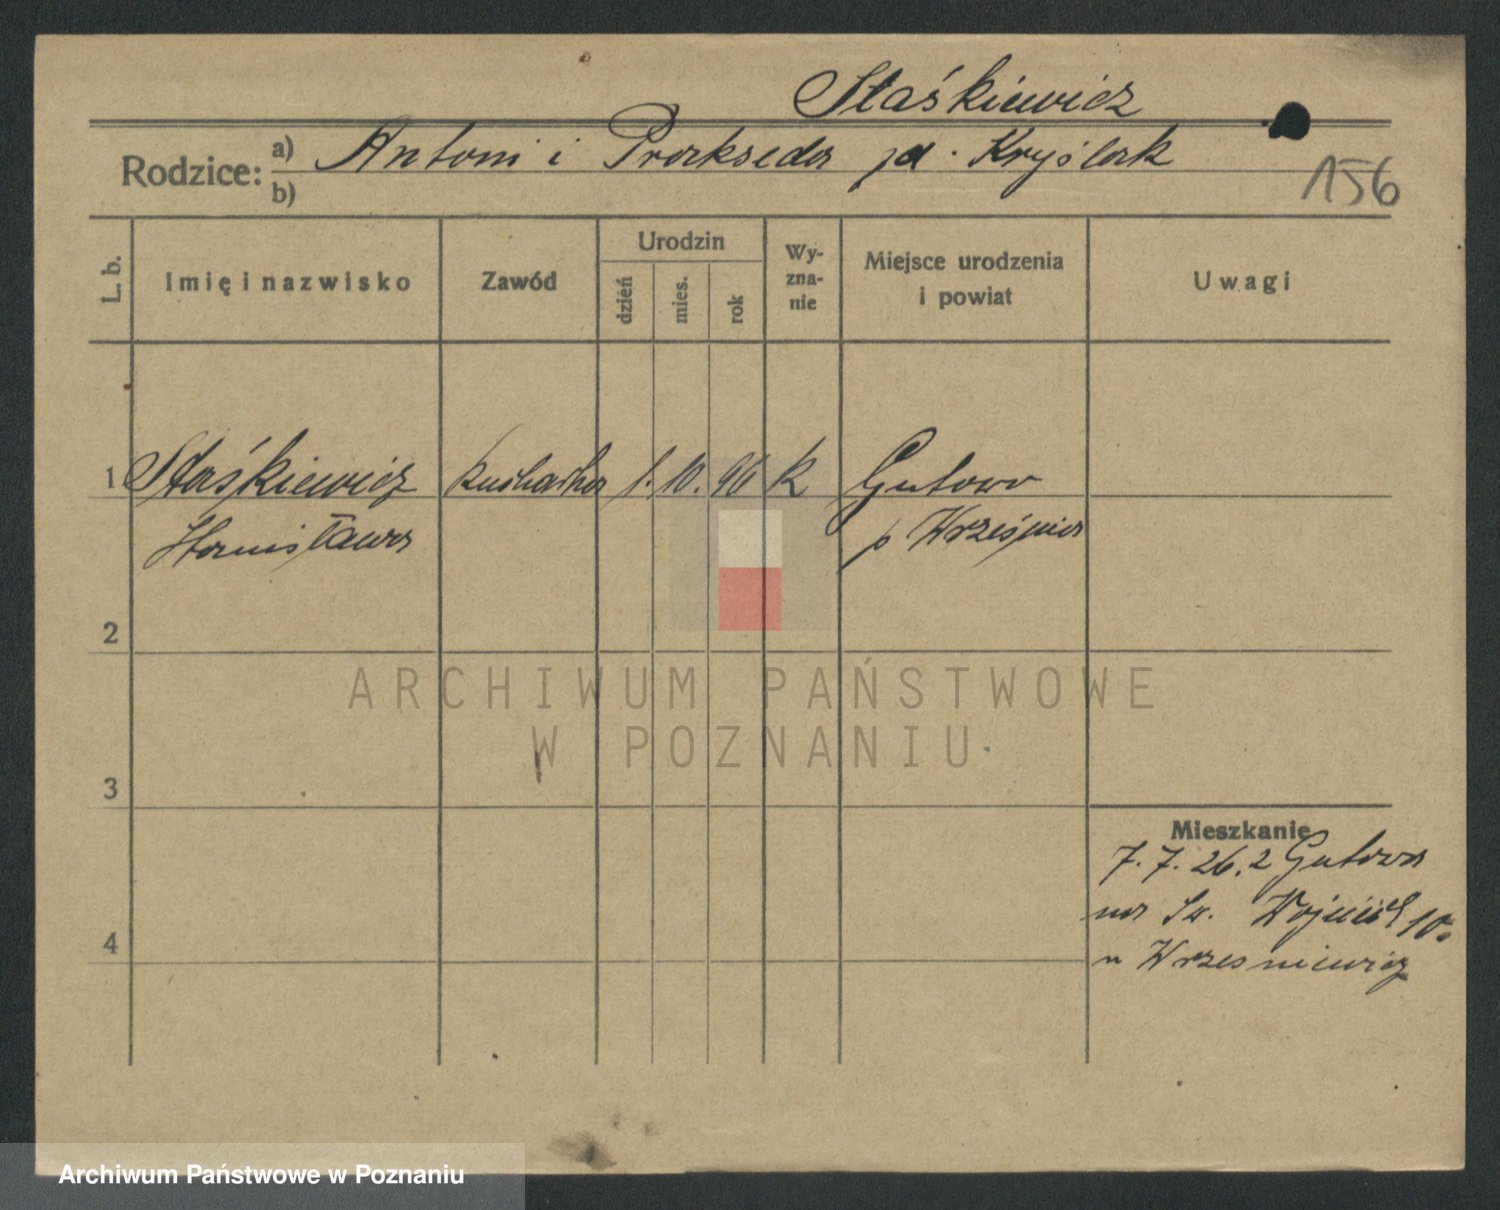 Staśkiewicz
Rodzice: a) Antoni i Prakseda zd. Kryślak
b)
156
L. b.
Imię i nazwisko
Zawód
Urodzin
dzień
mies.
rok
Wy-
zna-
nie
Miejsce urodzenia
i powiat
Uwagi
1 Staśkiewicz kucharka 1. 10. 96 k Gutowo
Stanisława p Września
2
3
4
Mieszkanie
7. 7. 26. z Gutowa
na Św. Wojciech 10.
u Wrzesniewicz
ARCHIWUM PAŃSTWOWE
W POZNANIU
Archiwum Państwowe w Poznaniu